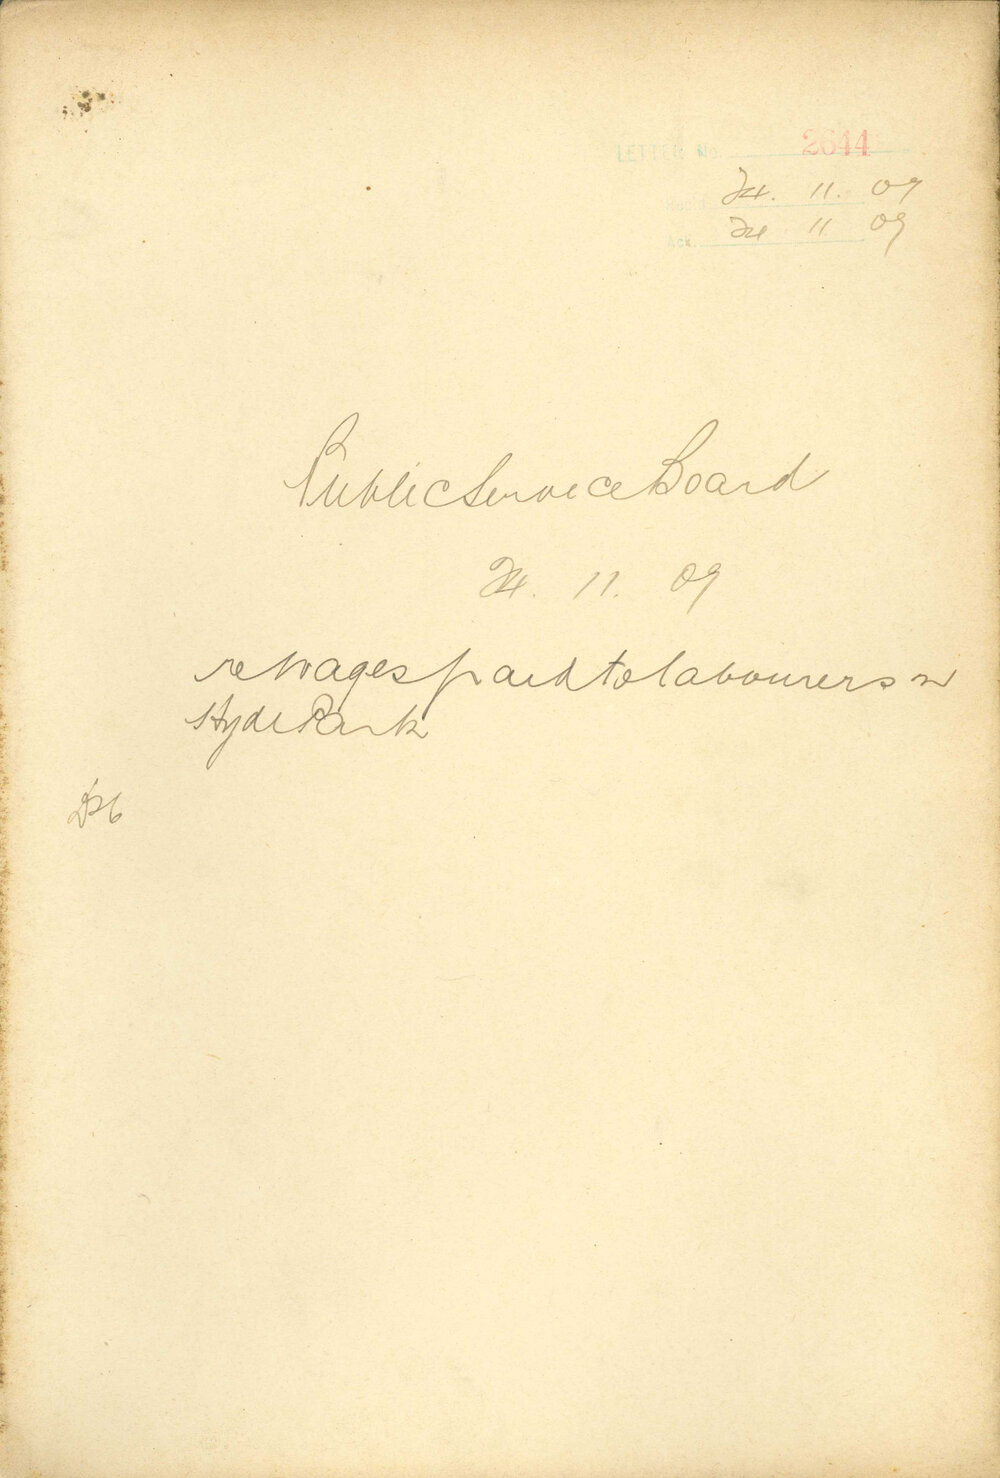 LETTER No. 2644
24. 11. 09
Ack. 24 11 09
Public Service Board
24. 11. 09
re Wages paid to labourers in
Hyde Park